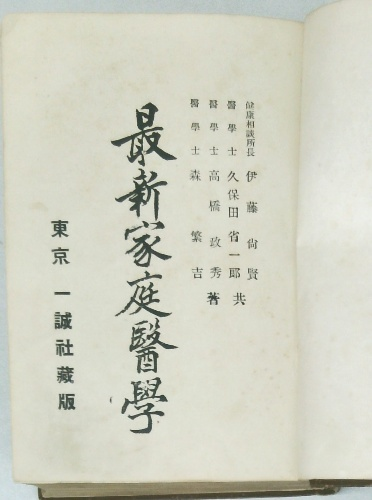 健康相談所長 伊藤尙賢
醫學士 久保田省一郎
醫學士 高橋政秀
醫學士 森繁吉
共著
最新家庭醫學
東京 一誠社藏版